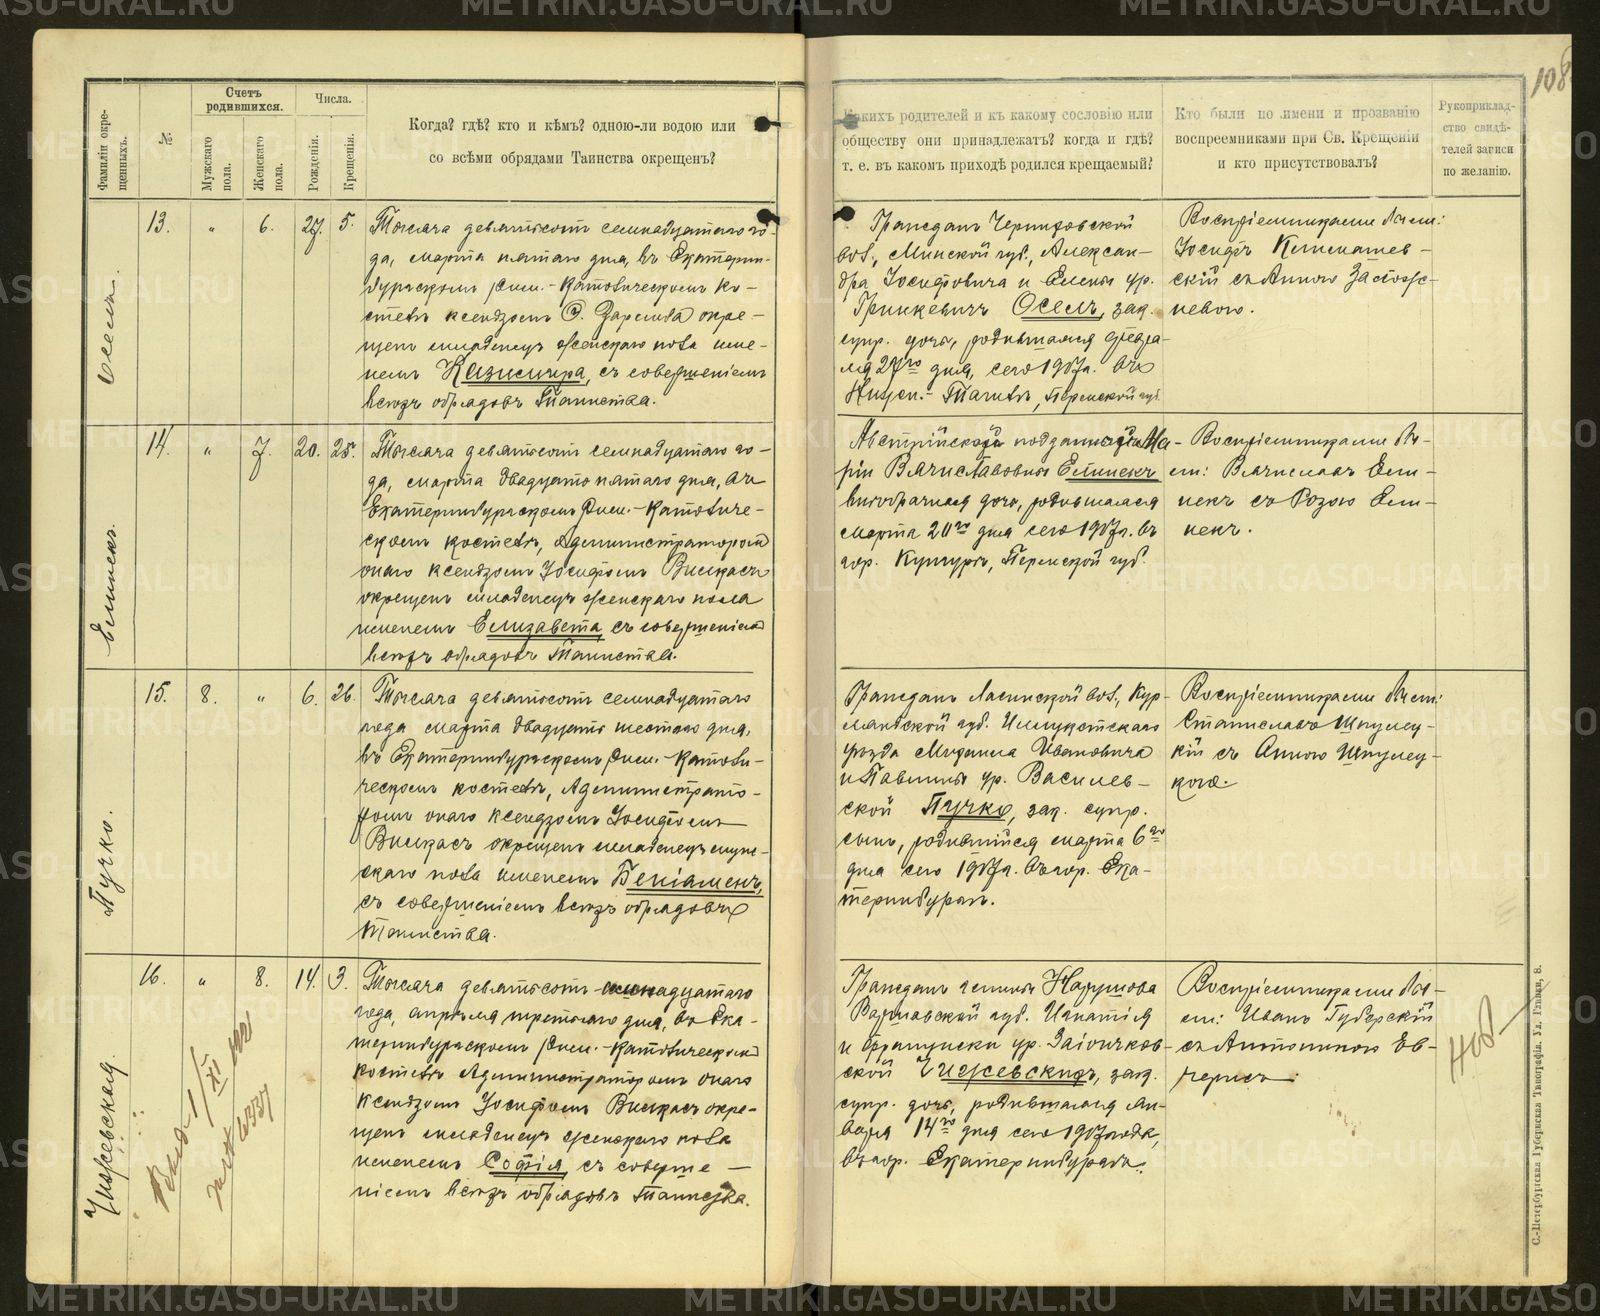 108
Фамиліи окрещенныхъ.
№
Счетъ родившихся.
Мужскаго пола.
Женскаго пола.
Числа.
Рожденія.
Крещенія.
Когда? гдѣ? кто и кѣмъ? одною-ли водою или
со всѣми обрядами Таинства окрещенъ?
Какихъ родителей и къ какому сословію или
обществу они принадлежатъ? когда и гдѣ?
т. е. въ какомъ приходѣ родился крещаемый?
Кто были по имени и прозванію
воспреемниками при Св. Крещеніи
и кто присутствовалъ?
Рукоприклад-
ство свидѣ-
телей записи
по желанію.
Осель.
13. " 6. 27. 5.
Тысяча девятьсотъ семнадцатаго го-
да, марта пятаго дня, въ Екатерин-
бургскомъ Рим.-Католическомъ ко-
стелѣ ксендзомъ Заремба окре-
щенъ младенецъ женскаго пола име-
немъ Казимира, съ совершеніемъ
всѣхъ обрядовъ Таинства.
Гражданъ
вол., Минской губ., Алексан-
дра Іосифовича и Елены ур.
Гринкевичъ Осель, зак.
супр. дочь, родившаяся февра-
ля 27го дня, сего 1917г. въ
Нижн.-Тагилѣ, Пермской губ.
Воспріемниками были:
Іосифъ Климашев-
скій съ Анною
Елинекъ.
14. " 7. 20. 25.
Тысяча девятьсотъ семнадцатаго го-
да, марта двадцать пятаго дня, въ
Екатеринбургскомъ Рим.-Католиче-
скомъ костелѣ, Администраторомъ
онаго ксендзомъ Іосифомъ Вилкасъ
окрещенъ младенецъ женскаго пола
именемъ Елизавета, съ совершеніемъ
всѣхъ обрядовъ Таинства.
Австрійской подданной Ма-
ріи Вячиславовны Елинекъ
внѣбрачная дочь, родившаяся
марта 20го дня сего 1917г. въ
гор. Кунгурѣ, Пермской губ.
Воспріемниками бы-
ли: Вячиславъ Ели-
некъ съ Розою Ели-
некъ.
Пучко.
15. 8. " 6. 26.
Тысяча девятьсотъ семнадцатаго
года марта двадцать шестого дня,
въ Екатеринбургскомъ Рим.-Католи-
ческомъ костелѣ, Администрато-
ромъ онаго ксендзомъ Іосифомъ
Вилкасъ окрещенъ младенецъ муж-
скаго пола именемъ Беніаминъ,
съ совершеніемъ всѣхъ обрядовъ
Таинства.
Гражданъ вол., Кур-
ляндской губ. Иллукстскаго
уѣзда Михаила Ивановича
и Павлины ур. Василев-
ской Пучко, зак. супр.
сынъ, родившійся марта 6го
дня сего 1917г. въ гор. Ека-
теринбургѣ.
Воспріемниками были:
Станиславъ
кій съ Анною
кою.
Чижевская.
16. " 8. 14. 3.
Тысяча девятьсотъ семнадцатаго
года, апрѣля третьяго дня, въ Ека-
теринбургскомъ Рим.-Католическомъ
костелѣ Администраторомъ онаго
ксендзомъ Іосифомъ Вилкасъ окре-
щенъ младенецъ женскаго пола
именемъ Софія, съ соверше-
ніемъ всѣхъ обрядовъ Таинства.
Гражданъ гмины
Варшавской губ. Игнатія
и Францишки ур. Заіончков-
ской Чижевскихъ, зак.
супр. дочь, родившаяся ян-
варя 14го дня сего 1917 года,
въ гор. Екатеринбургѣ.
Воспріемниками бы-
ли: Иванъ Губерскій
съ Антониною
С.-Петербургская Губернская Типографія.
METRIKI.GASO-URAL.RU